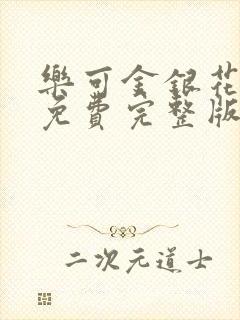 樂可金銀花
免費完整版
二次元道士